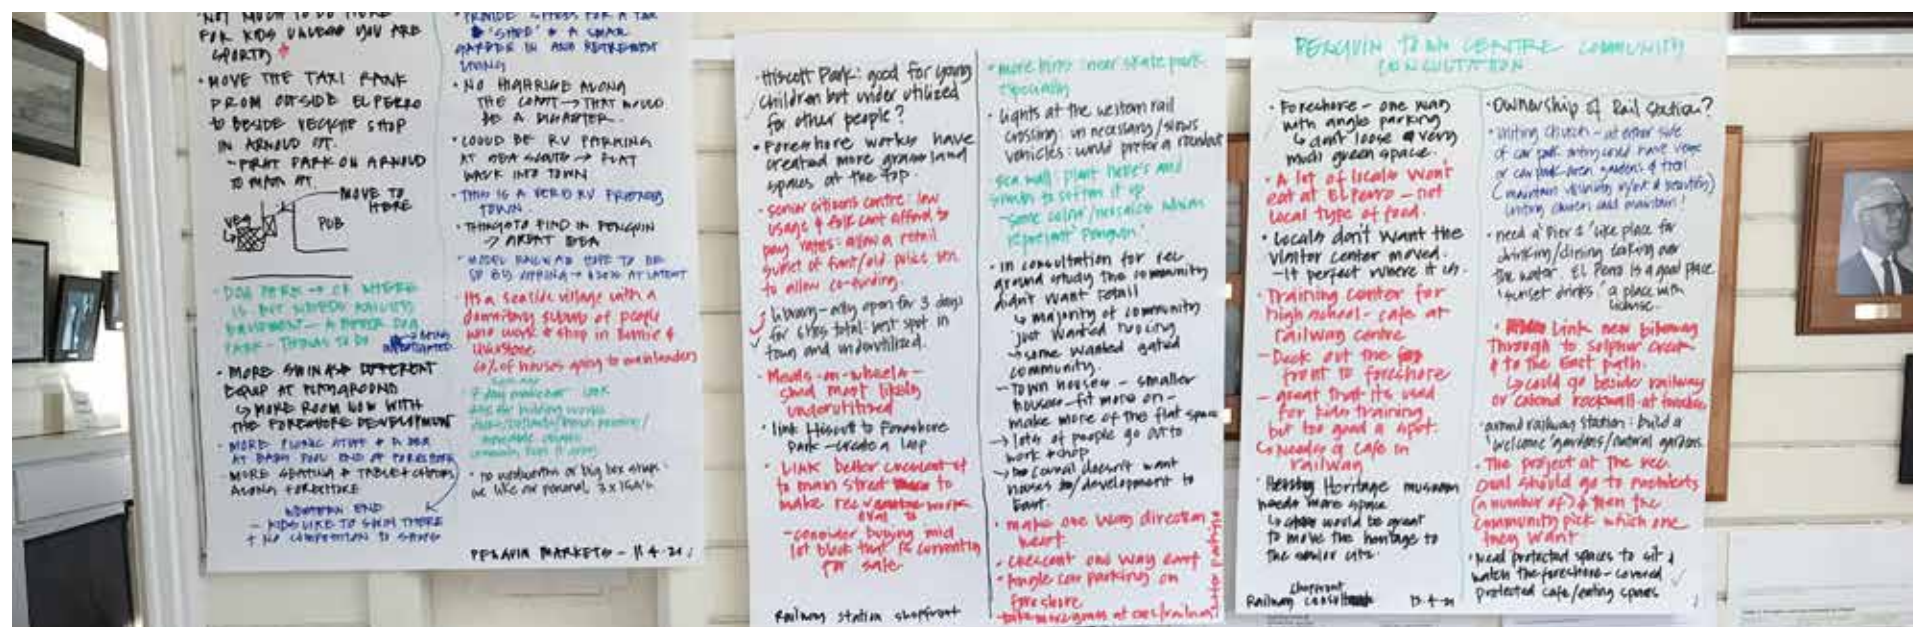 NOT MUCH TO DO HERE
FOR KIDS UNLESS YOU ARE
SPORTY
• MOVE THE TAXI RANK
FROM OUTSIDE EL PERRO
to BESIDE VEGGIE SHOP
IN ARNOLD ST.
- FIRST PARK ON ARNOLD
TO MAIN ST.
MOVE TO
HERE
VEG
PUB
• DOG PARK → OR WHERE
IS BUT NEEDS
EQUIPMENT - A BETTER DOG
PARK - THINGS TO DO
→ BEING
INVESTIGATED
• MORE SWINGS DIFFERENT
EQUIP AT PLAYGROUND
↳ MORE ROOM NOW WITH
THE FORESHORE DEVELOPMENT
• MORE PICNIC STUFF + A BBQ
AT BABY POOL END OF FORESHORE
- MORE SEATING + TABLE + CHAIRS
ALONG FORESHORE
WESTERN END
- KIDS LIKE TO SWIM THERE
+ NO COMPETITION TO
PROVIDE SITES FOR A
'SHED' + A SMALL
GARDEN IN AND RETIREMENT
LIVING
• NO HIGHRISE ALONG
THE COAST → THAT WOULD
BE A DISASTER.
• COULD BE RV PARKING
AT SEA SCOUTS → FLAT
WALK INTO TOWN
• THIS IS A VERY RV FRIENDLY
TOWN
• THINGS TO FIND IN PENGUIN
→ GREAT IDEA
• MODEL RAILWAY HOPE TO BE
UP BY SPRING → AT LATEST
• Its a seaside village with a
dormitory suburb of people
who work & shop in Burnie &
Ulverstone
60% of houses going to mainlanders
• 7 day makeover
• no woolworths or big box shops -
we like our personal 2 x IGA's
PENGUIN MARKETS - 11.4.21
• Hiscott Park: good for young
children but under utilized
for other people?
• Foreshore works have
created more grass land
spaces at the top.
• senior citizens centre: low
usage & folk cant afford to
pay rates: allow a retail
outlet at front/old police stn
to allow co-funding.
• Library - only open for 3 days
for 6 hrs total: best spot in
town and underutilized.
• Meals-on-wheels -
shed most likely
underutilized
• link Hiscott to Foreshore
Park - create a loop
• Link better crescent st
to main street to
make rec
oval to
- consider buying mid
lot block that is currently
for sale
Railway station shopfront
• more bins: near skate park
especially
• Lights at the western rail
crossing: unnecessary/slows
vehicles: would prefer a roundabout
sea wall: plant here's and
similar to soften it up
- some color/mosaics which
represent 'Penguin'
• in consultation for rec
ground study the community
didn't want retail
↳ majority of community
just wanted housing
→ some wanted gated
community.
- Town houses - smaller
houses - fit more on -
make more of the flat space
→ lots of people go out to
work + shop
→ council doesn't want
houses to/development to
east.
• make one way direction
heart.
• crescent one way east
• Angle car parking on
foreshore
PENGUIN TOWN CENTRE COMMUNITY
CONSULTATION
• Foreshore - one way
with angle parking
↳ don't loose a very
much green space.
• A lot of locals won't
eat at El Perro - not
local type of food.
• Locals don't want the
visitor center moved.
- It perfect where it is.
• Training center for
high school - cafe at
railway centre
- Deck out the
front to foreshore
- great that its used
for kids training
but too good a spot.
↳ needs a cafe in
railway
• Heritage museum
needs more space
↳ would be great
to move the heritage to
the senior cits.
shopfront
Railway consult 13-4-21
• Ownership of Rail Station?
• Uniting church - at either side
of car park entry could have verge
or car park area gardens & trail
(maintain visibility in/out & beautify)
Uniting church could maintain!
• need a 'Pier 1' like place for
drinking/dining looking over
the water. El Perro is a good place
'sunset drinks' a place with
license.
• Link new bikeway
through to sulphur creek
& to the East path.
↳ could go beside railway
or extend rockwall at
• around railway station: build a
'welcome' gardens/natural gardens.
• The project at the Rec.
Oval should go to
(a number of) & then the
community pick which one
they want
• Need protected spaces to sit &
watch the foreshore - covered
protected cafe/eating spaces